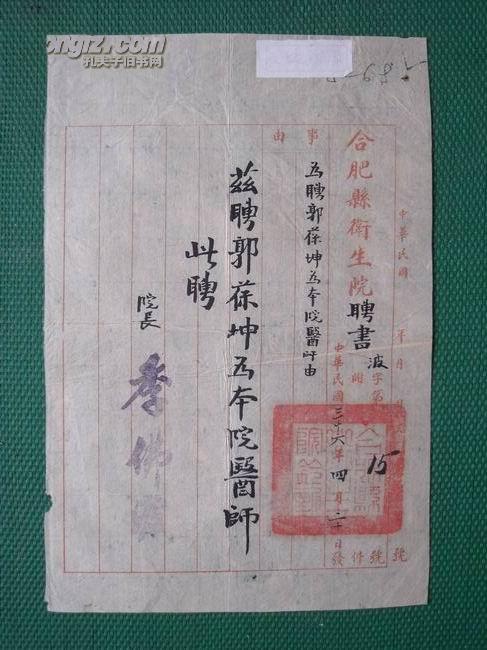 kongfz.com
孔夫子旧书网
中華民國 年 月 號
合肥縣衛生院聘書
波字第 15 號
附 件
中華民國三十六年四月二十日發
事由
為聘郭葆坤為本院醫師由
茲聘郭葆坤為本院醫師
此聘
院長
季